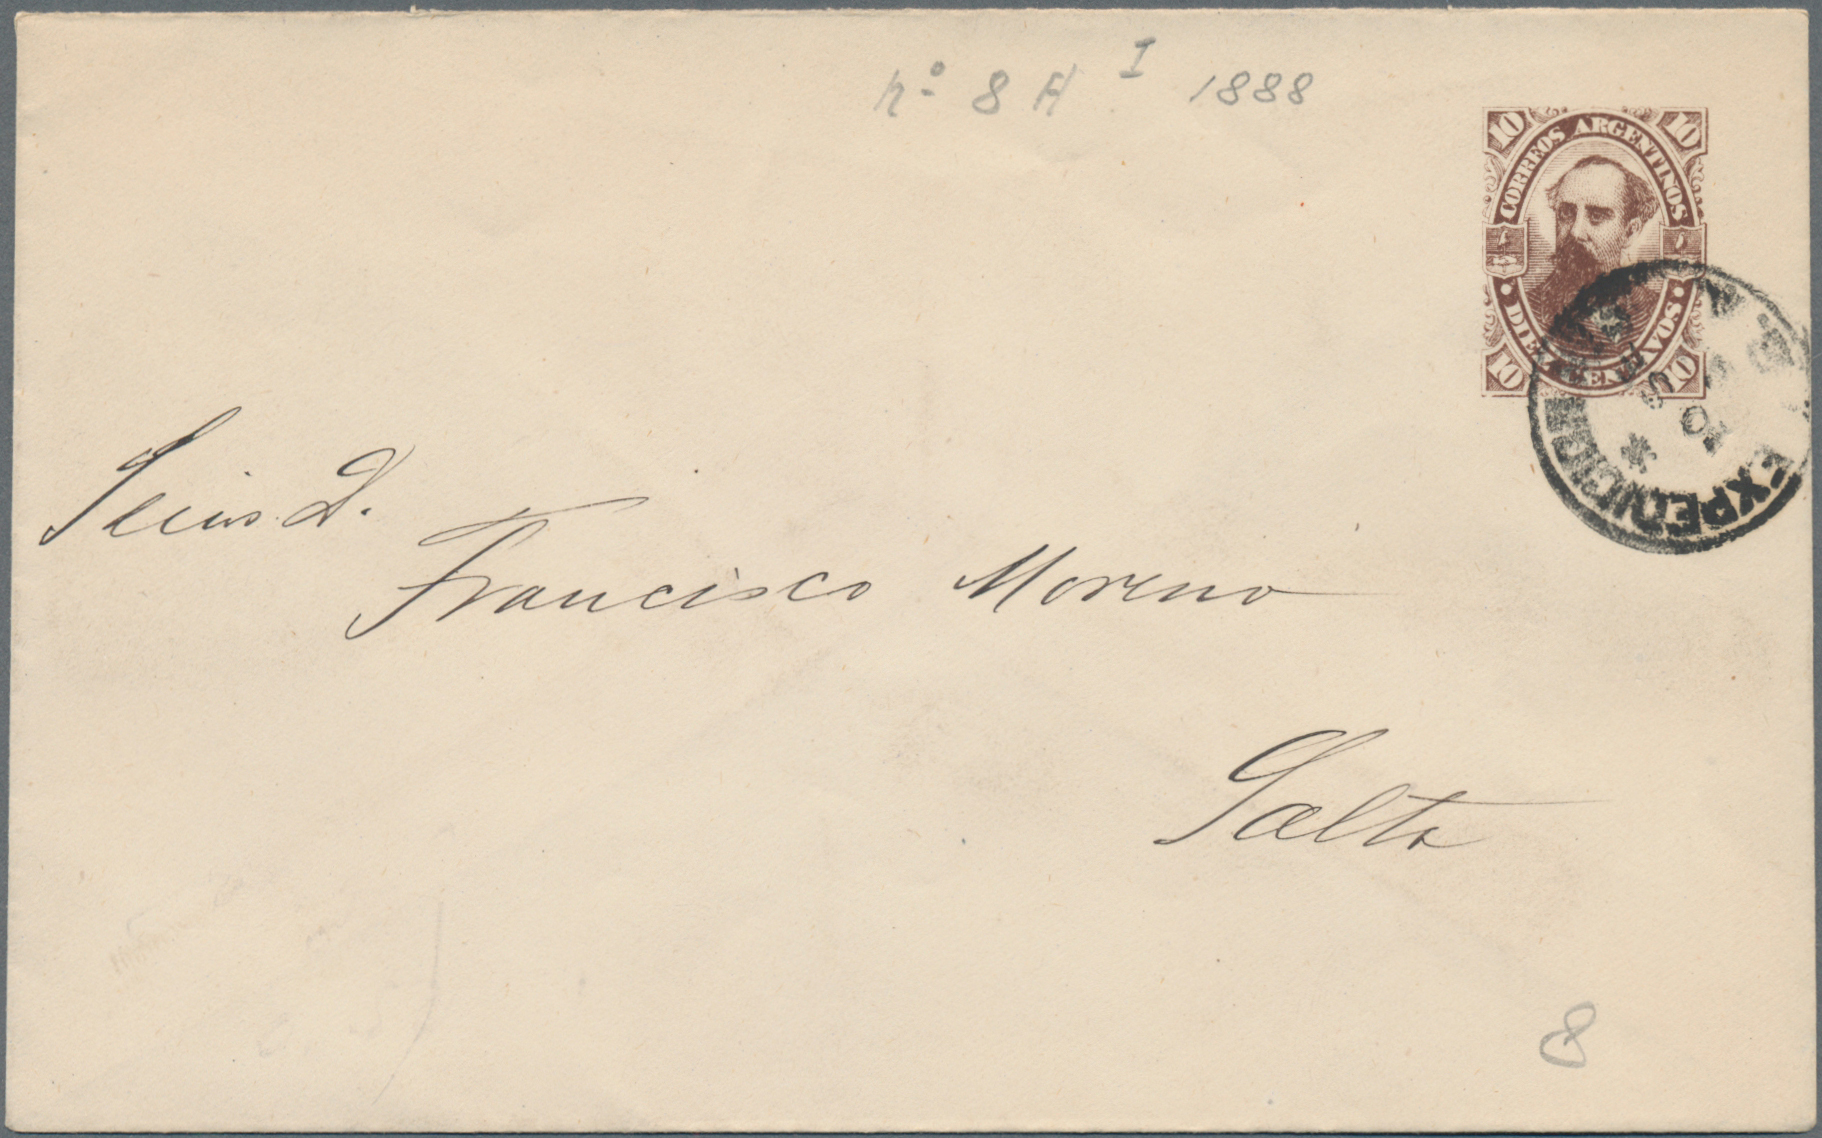 nº 8 A I 1888
10 10
CORREOS ARGENTINOS
DIEZ CENTAVOS
10 10
EXPEDICION
D.
Francisco Moreno
Salta
8